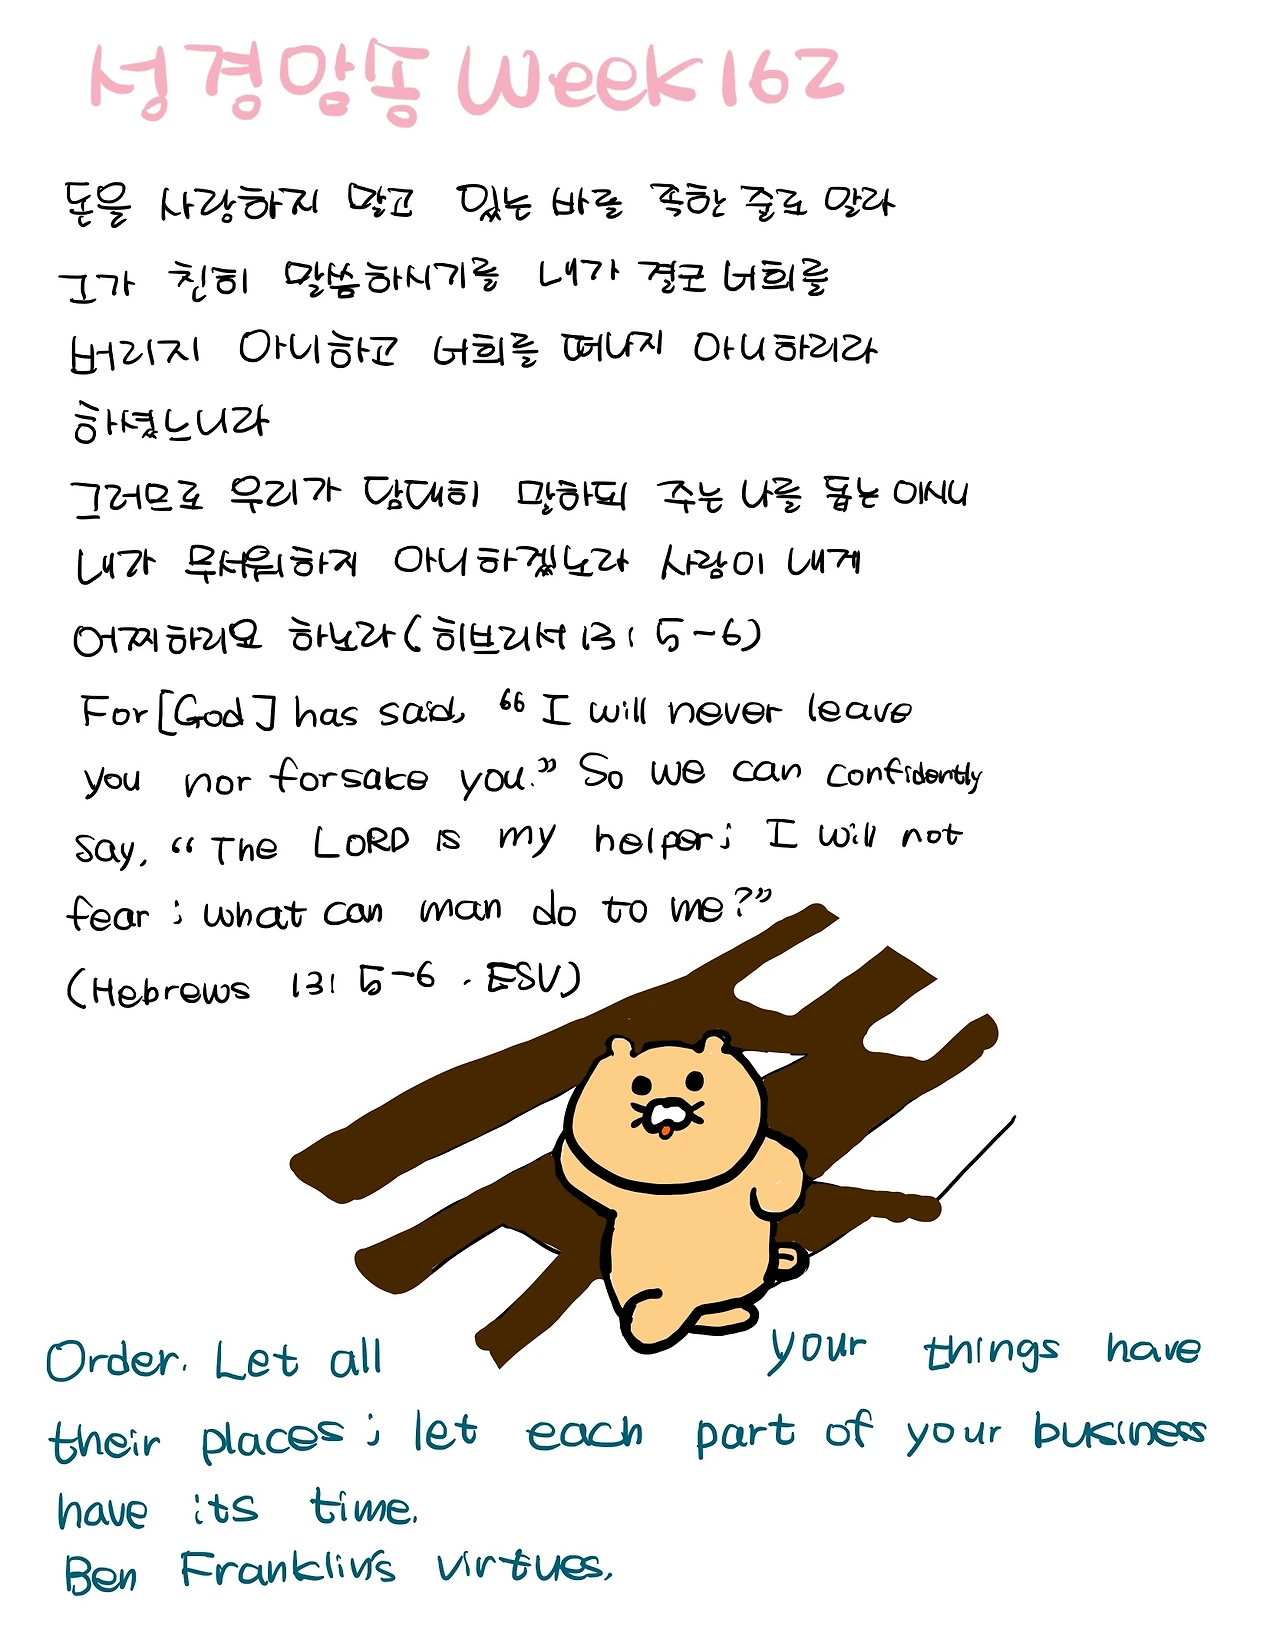 성경암송 Week 162
돈을 사랑하지 말고 있는 바를 족한 줄로 말라
그가 친히 말씀하시기를 내가 결코 너희를
버리지 아니하고 너희를 떠나지 아니하리라
하셨느니라
그러므로 우리가 담대히 말하되 주는 나를 돕는 이시니
내가 무서워하지 아니하겠노라 사람이 내게
어찌하리요 하노라 (히브리서 13: 5-6)
For [God] has said, “I will never leave
you nor forsake you.” So we can confidently
say, “The LORD is my helper; I will not
fear; what can man do to me?”
(Hebrews 13: 5-6. ESV)
Order. Let all your things have
their places; let each part of your business
have its time.
Ben Franklin's virtues.